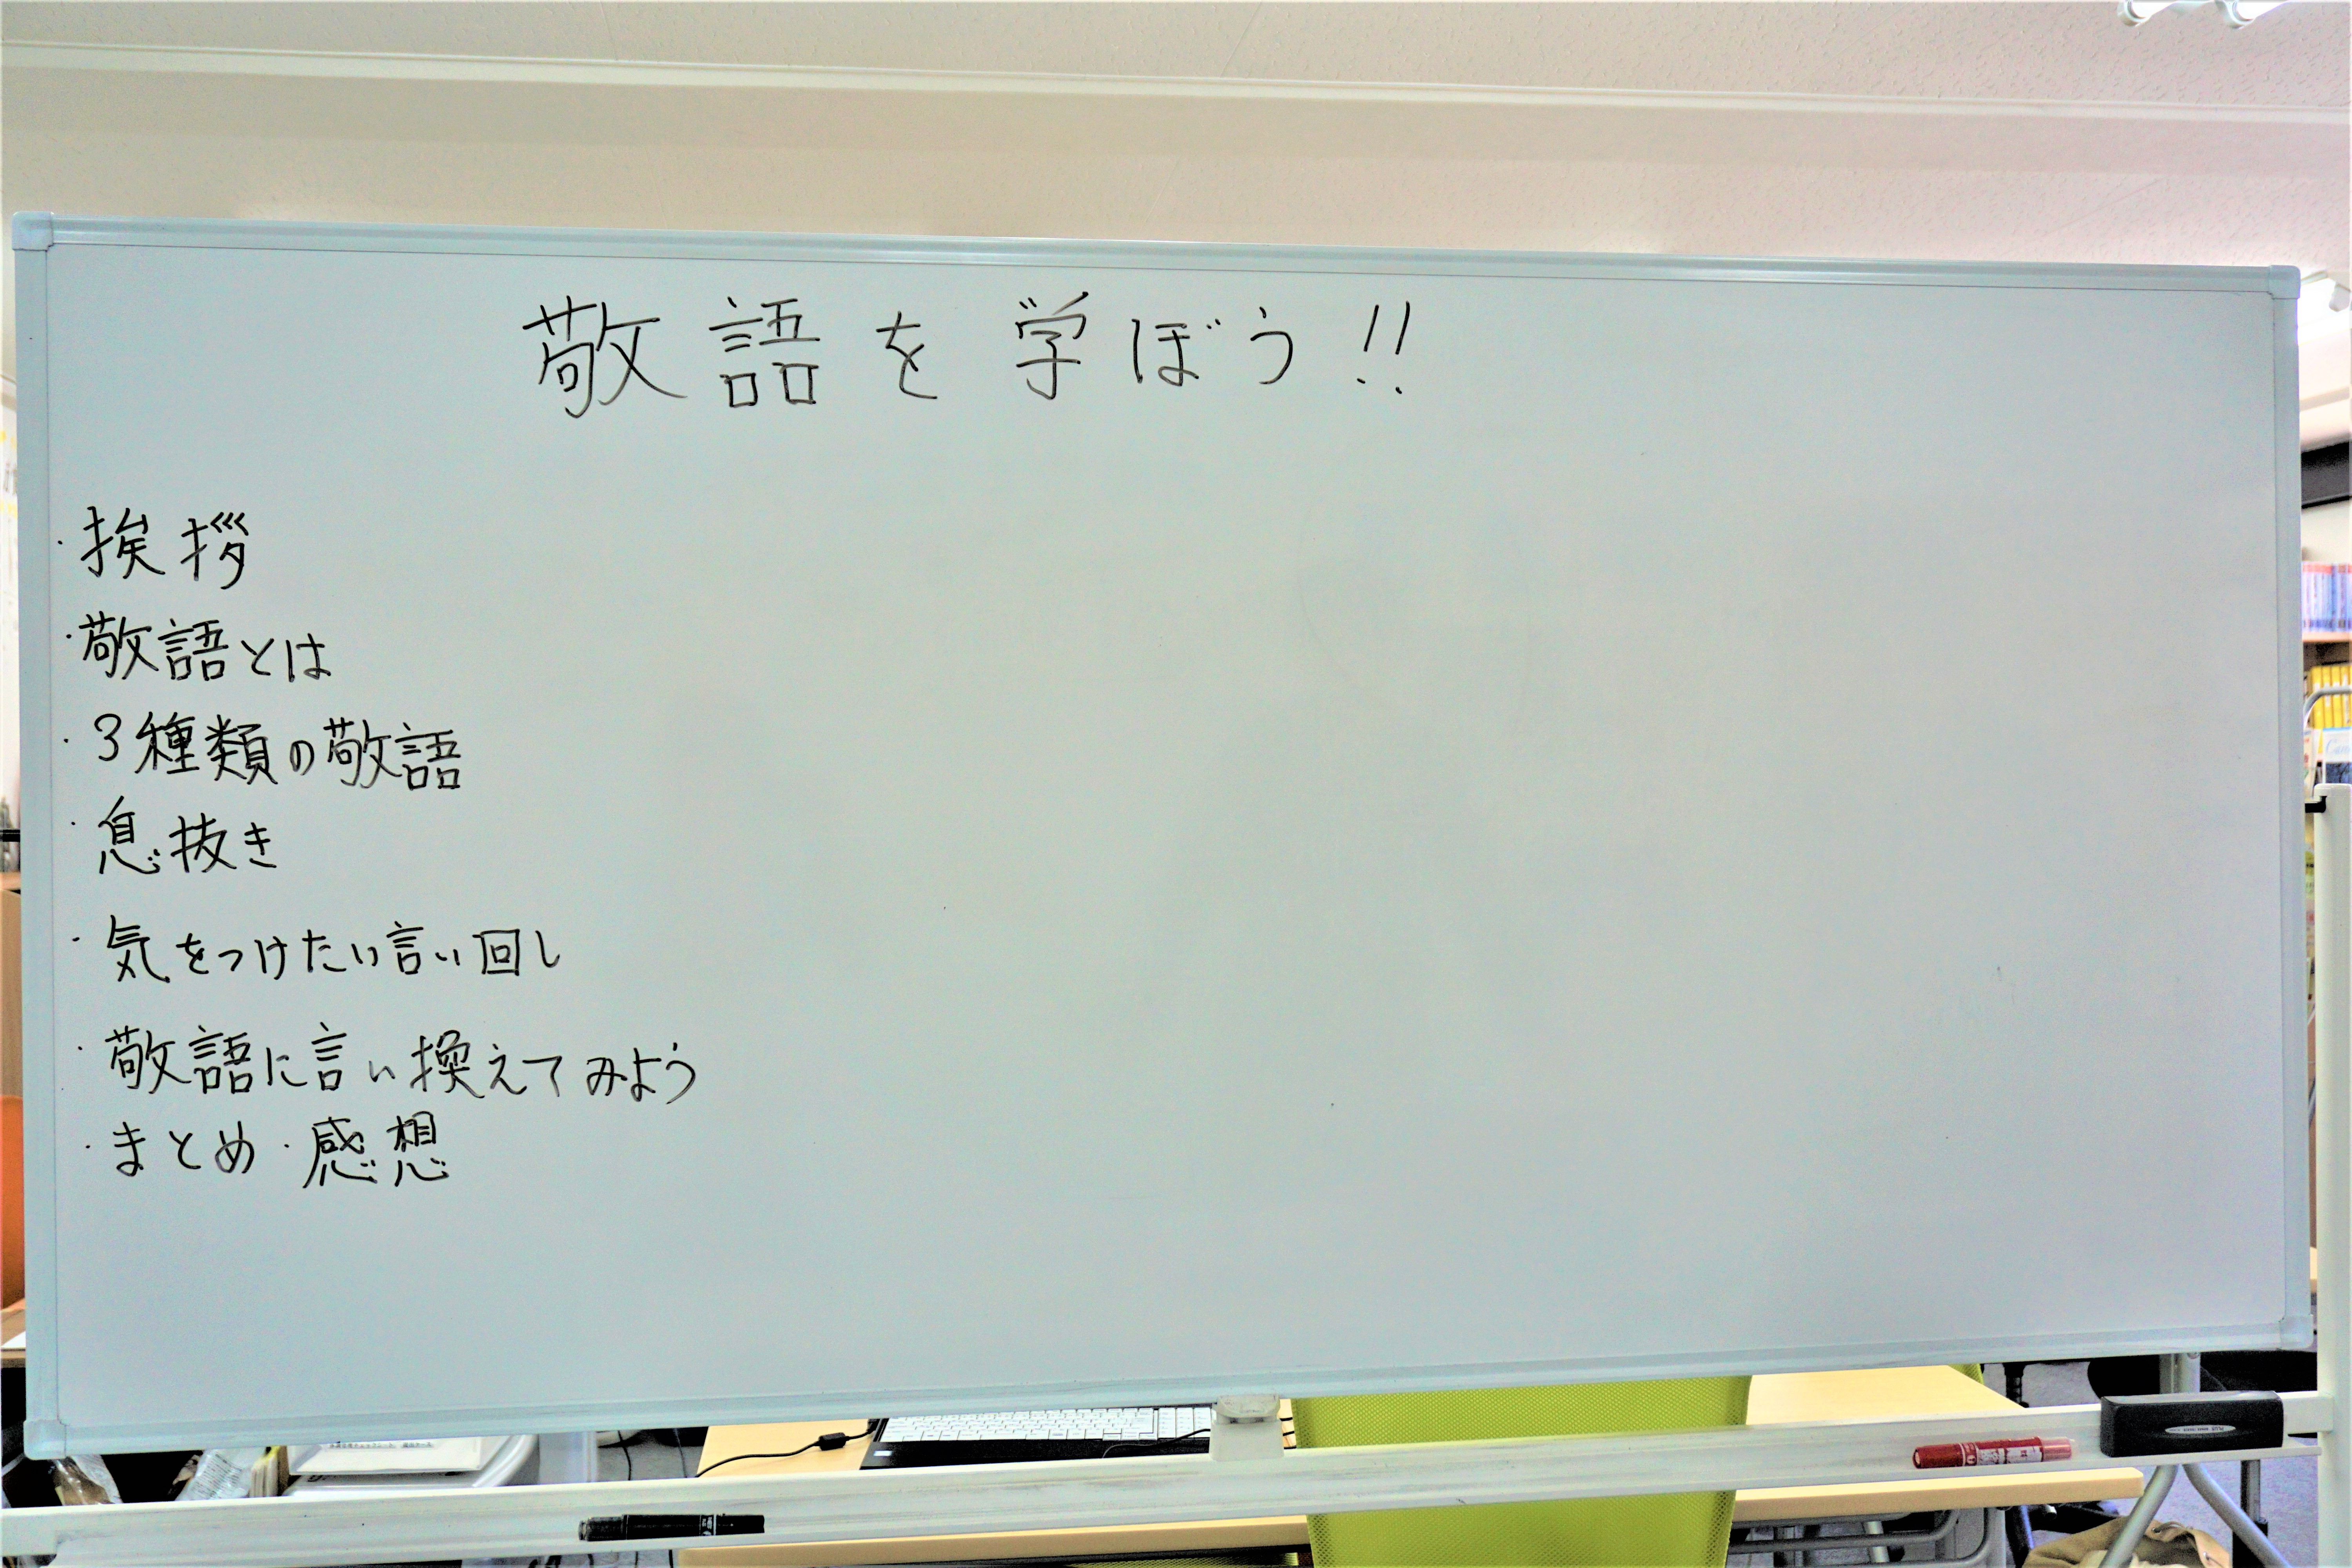 敬語を学ぼう!!
・挨拶
・敬語とは
・3種類の敬語
・息抜き
・気をつけたい言い回し
・敬語に言い換えてみよう
・まとめ・感想